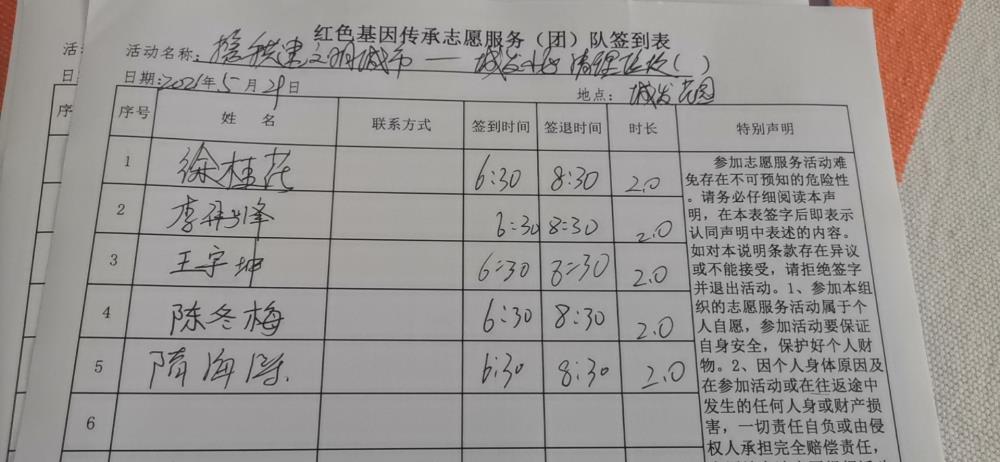 红色基因传承志愿服务（团）队签到表
活动名称：携手共建文明城市——城发小区清理
日期:2021年5月29日
地点：城发花园
序号 姓名 联系方式 签到时间 签退时间 时长 特别声明
1 徐桂花 6:30 8:30 2.0
2 李 峰 6:30 8:30 2.0
3 王宇坤 6:30 8:30 2.0
4 陈冬梅 6:30 8:30 2.0
5 隋海 6:30 8:30 2.0
6
参加志愿服务活动难
免存在不可预知的危险性
。请务必仔细阅读本声
明，在本表签字后即表示
认同声明中表述的内容。
如对本说明条款存在异议
或不能接受，请拒绝签字
并退出活动。1、参加本组
织的志愿服务活动属于个
人自愿，参加活动要保证
自身安全，保护好个人财
物。2、因个人身体原因及
在参加活动或在往返途中
发生的任何人身或财产损
害，一切责任自负或由侵
权人承担完全赔偿责任，
活
日
序